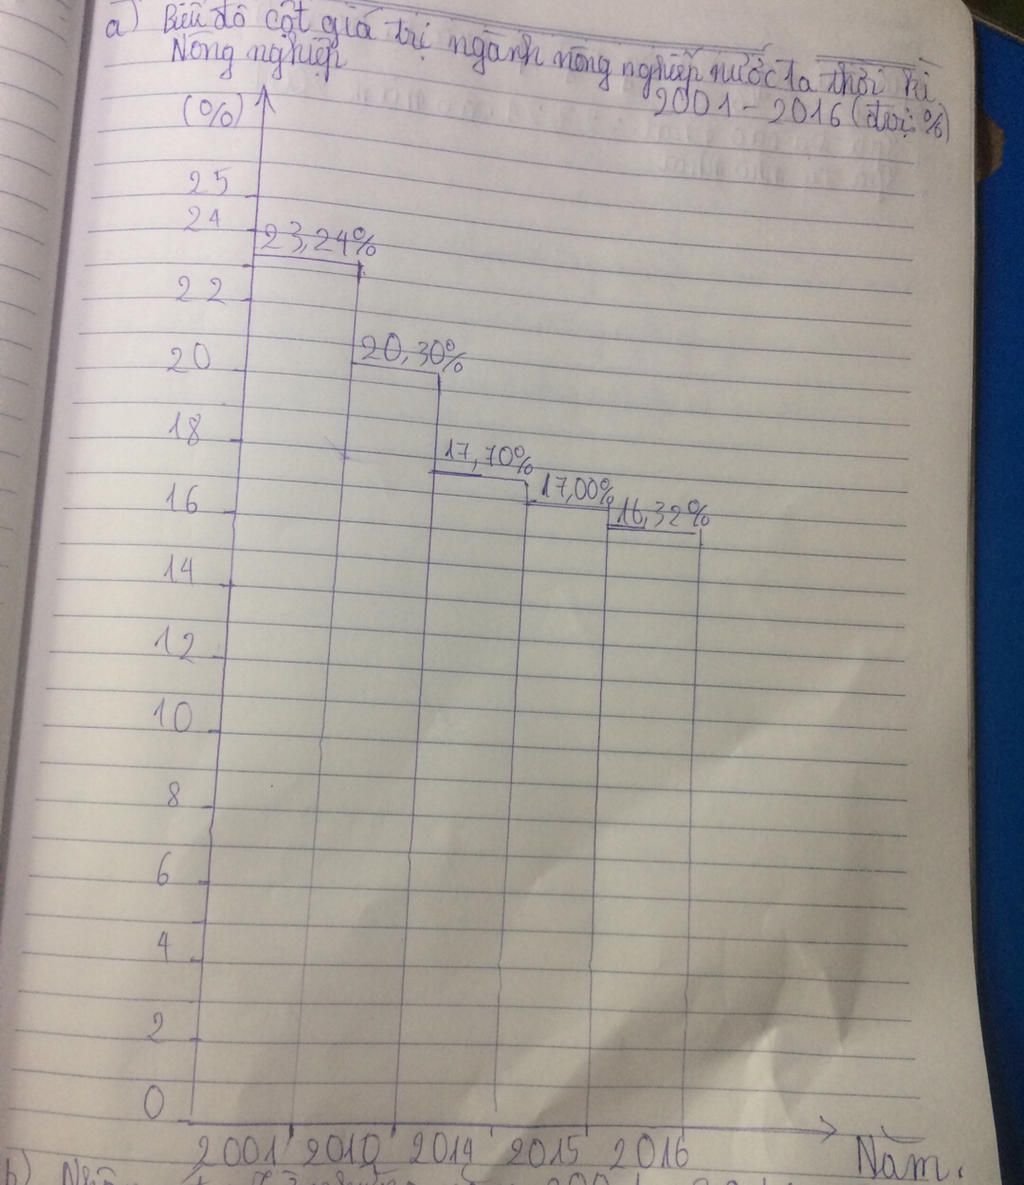 a) Biểu đồ cột giá trị ngành nông nghiệp nước ta thời kì
2001 - 2016 (đvị: %)
Nông nghiệp
(%)
25
24
23,24%
22
20,30%
20
18
17,70%
17,00%
16
16,32%
14
12
10
8
6
4
2
0
2001 2010 2014 2015 2016 Năm.
b)